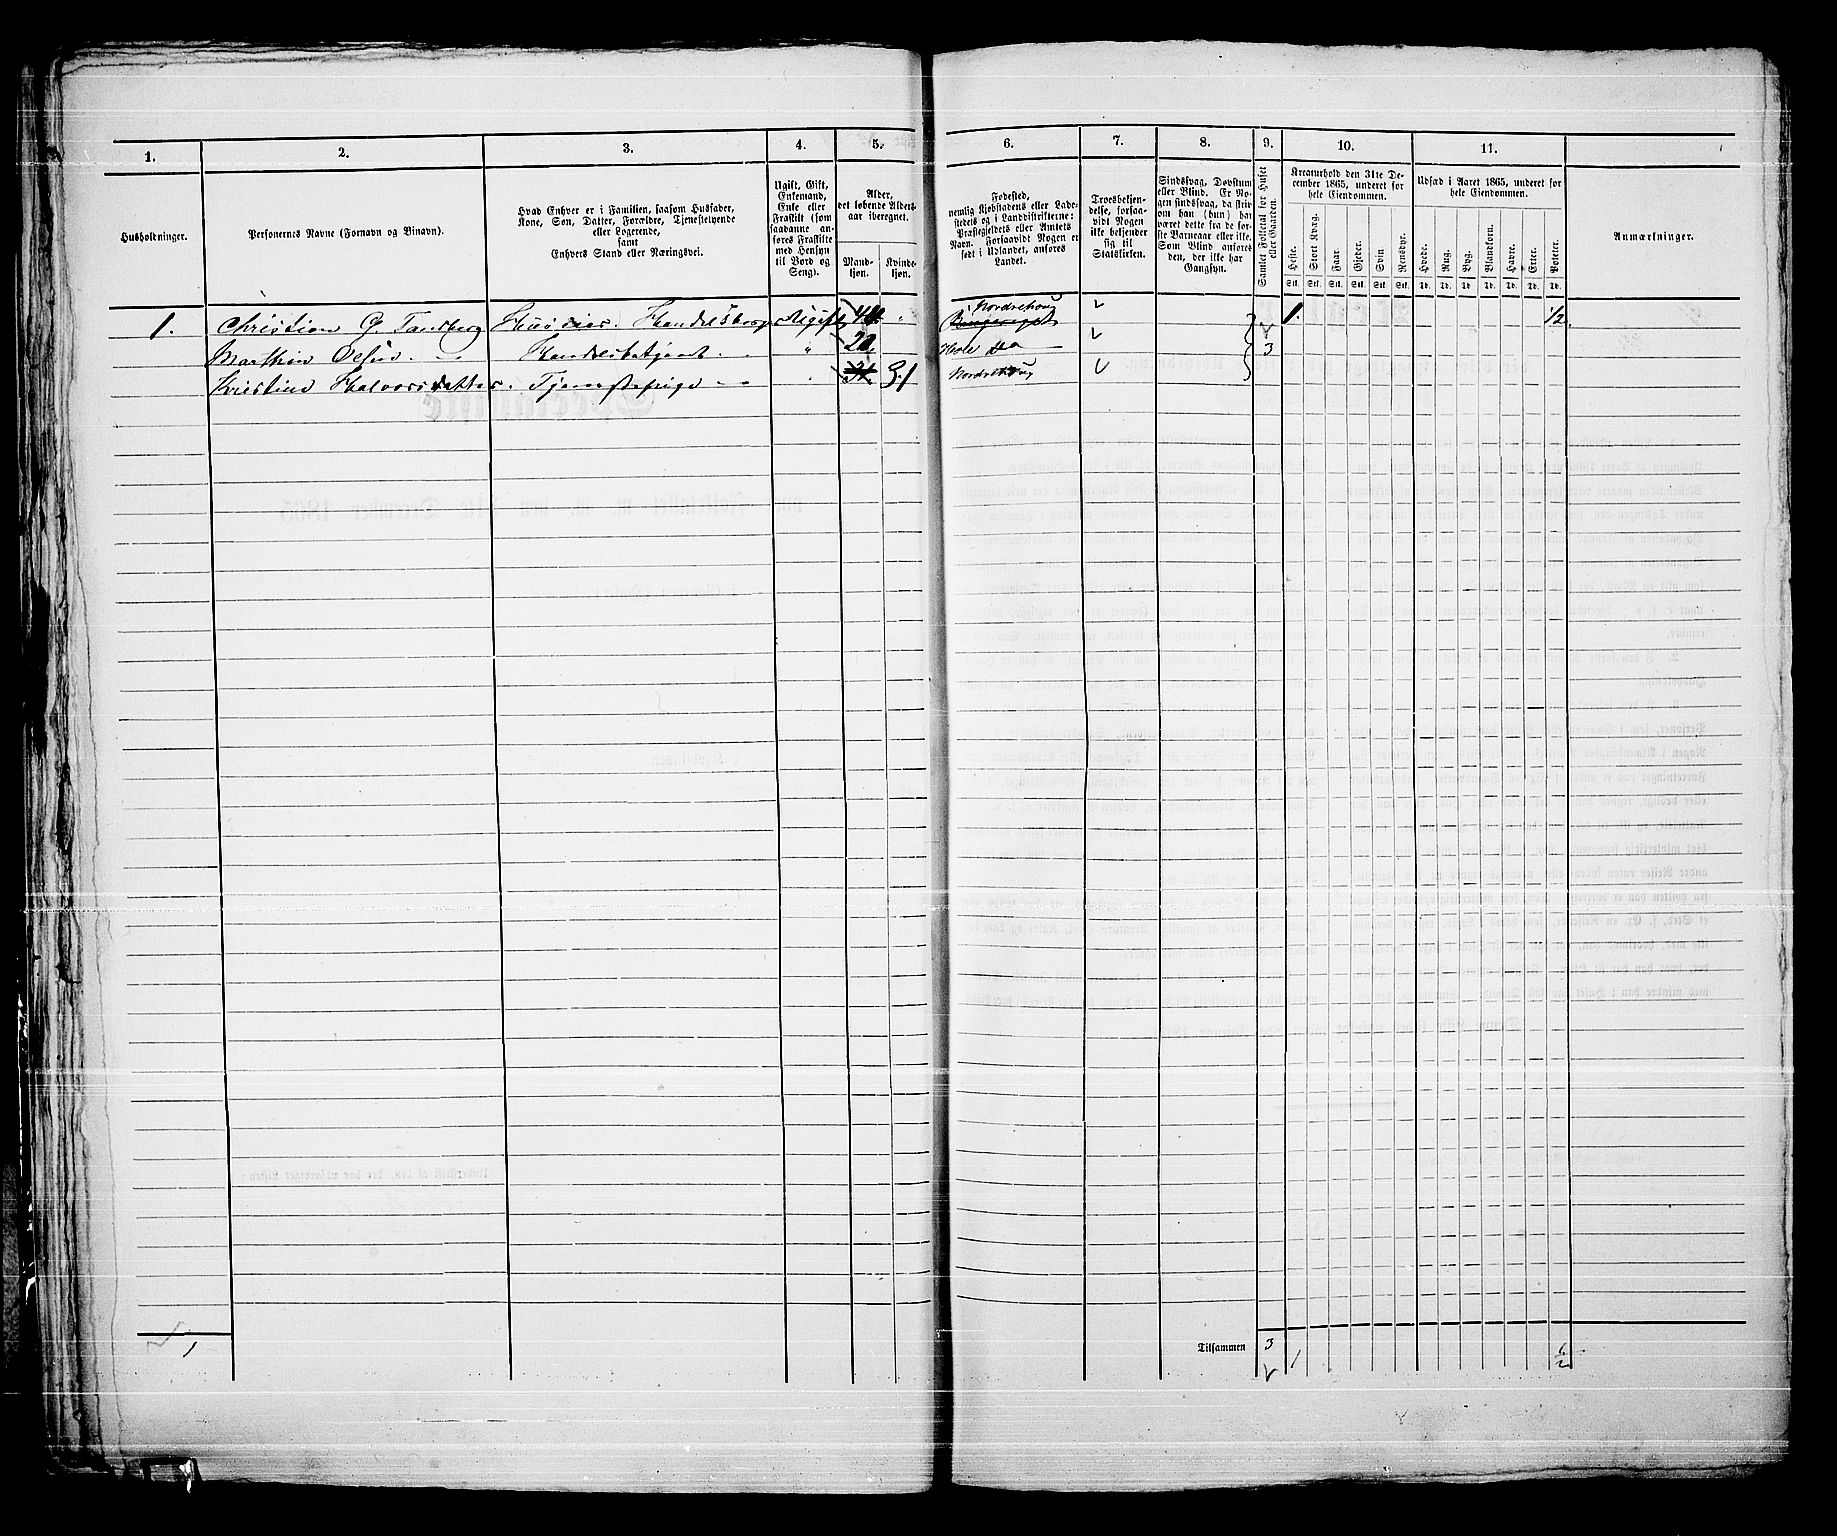 1. 2. 3. 4. 5. 6. 7. 8. 9. 10. 11.
Husholdninger.
Personernes Navne (Fornavn og Binavn).
Hvad Enhver er i Familien, saasom Husfader,
Kone, Søn, Datter, Forældre, Tjenestetyende
eller Logerende,
samt
Enhvers Stand eller Næringsvei.
Ugift, Gift,
Enkemand,
Enke eller
Fraskilt (som
saadanne an-
føres Fraskilte
med Hensyn
til Bord og
Seng).
Alder,
det løbende Alders-
aar iberegnet.
Mand-
kjøn.
Kvinde-
kjøn.
Fødested,
nemlig Kjøbstadens eller Lade-
stedets og i Landdistrikterne:
Præstegjeldets eller Amtets
Navn. Forsaavidt Nogen er
født i Udlandet, anføres
Landet.
Troesbekjen-
delse, forsaa-
vidt Nogen
ikke bekjender
sig til
Statskirken.
Sindssvag, Døvstum
eller Blind. Er No-
gen sindssvag, da skriv
om han (hun) har
været dette fra de før-
ste Barneaar eller ikke.
Som Blind anføres
den, der ikke har
Gangsyn.
Samlet Folketal for Huset
eller Gaarden.
Kreaturhold den 31te De-
cember 1865, underet for
hele Eiendommen.
Heste. Stort Kvæg. Faar. Gjeder. Svin. Rensdyr.
Stk. Stk. Stk. Stk. Stk. Stk.
Udsæd i Aaret 1865, underet for
hele Eiendommen.
Hvede. Rug. Byg. Blandkorn. Havre. Erter. Poteter.
Td. Td. Td. Td. Td. Td. Td.
Anmærkninger.
1. Christian G Tandberg Handelsborger Ugift 41 " Nordrehoug 1. 1/2.
Marthin Olsen. Handelsbetjent. " 20 Hole 3
Kristine Halvorsdatter. Tjenestepige 31 31 Nordrehoug
1 Tilsammen 3 1 1/2